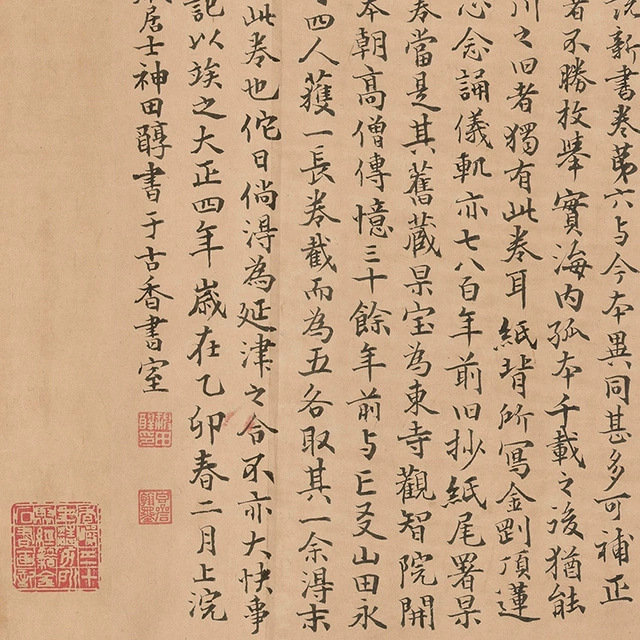 説新書卷第六与今本異同甚多可補正
者不勝枚舉實海内孤本千載之後猶能
川之旧者獨有此卷耳紙背所寫金剛頂蓮
心念誦儀軌亦七八百年前旧抄紙尾署杲
卷當是其舊藏杲宝為東寺觀智院開
本朝高僧傳憶三十餘年前与亡友山田永
四人獲一長卷截而為五各取其一余淂末
此卷也佗日倘淂為延津之合不亦大快事
記以竢之大正四年歲在乙卯春二月上浣
居士神田醇書于古香書室
神田醇印